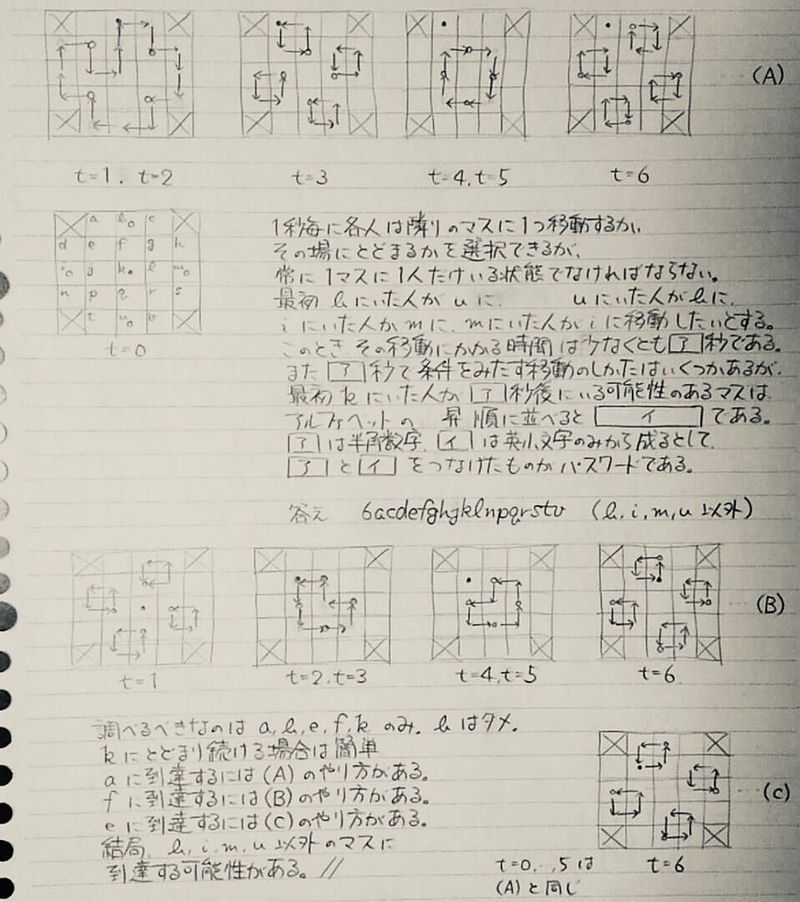 (A)
t=1, t=2
t=3
t=4, t=5
t=6
a b c
d e f g h
i j k l m
n p q r s
t u v
t=0
1秒毎に各人は隣りのマスに1つ移動するか、
その場にとどまるかを選択できるが、
常に1マスに1人だけいる状態でなければならない。
最初 bにいた人が uに、 uにいた人がbに、
iにいた人がmに、mにいた人がiに移動したいとする。
このとき その移動にかかる時間は少なくとも ア 秒である。
また ア 秒で条件をみたす移動のしかたはいくつかあるが、
最初 kにいた人が ア 秒後にいる可能性のあるマスは、
アルファベットの 昇順に並べると イ である。
ア は半角数字、イ は英小文字のみから成るとして、
ア と イ をつなげたものがパスワードである。
答え 6acdefghjklnpqrstv (b, i, m, u 以外)
(B)
t=1
t=2, t=3
t=4, t=5
t=6
調べるべきなのは a, b, e, f, k のみ。bはダメ。
kにとどまり続ける場合は簡単
aに到達するには(A)のやり方がある。
fに到達するには(B)のやり方がある。
eに到達するには(C)のやり方がある。
結局、b, i, m, u 以外のマスに
到達する可能性がある。//
(C)
t=0, ‥, 5は
(A)と同じ
t=6